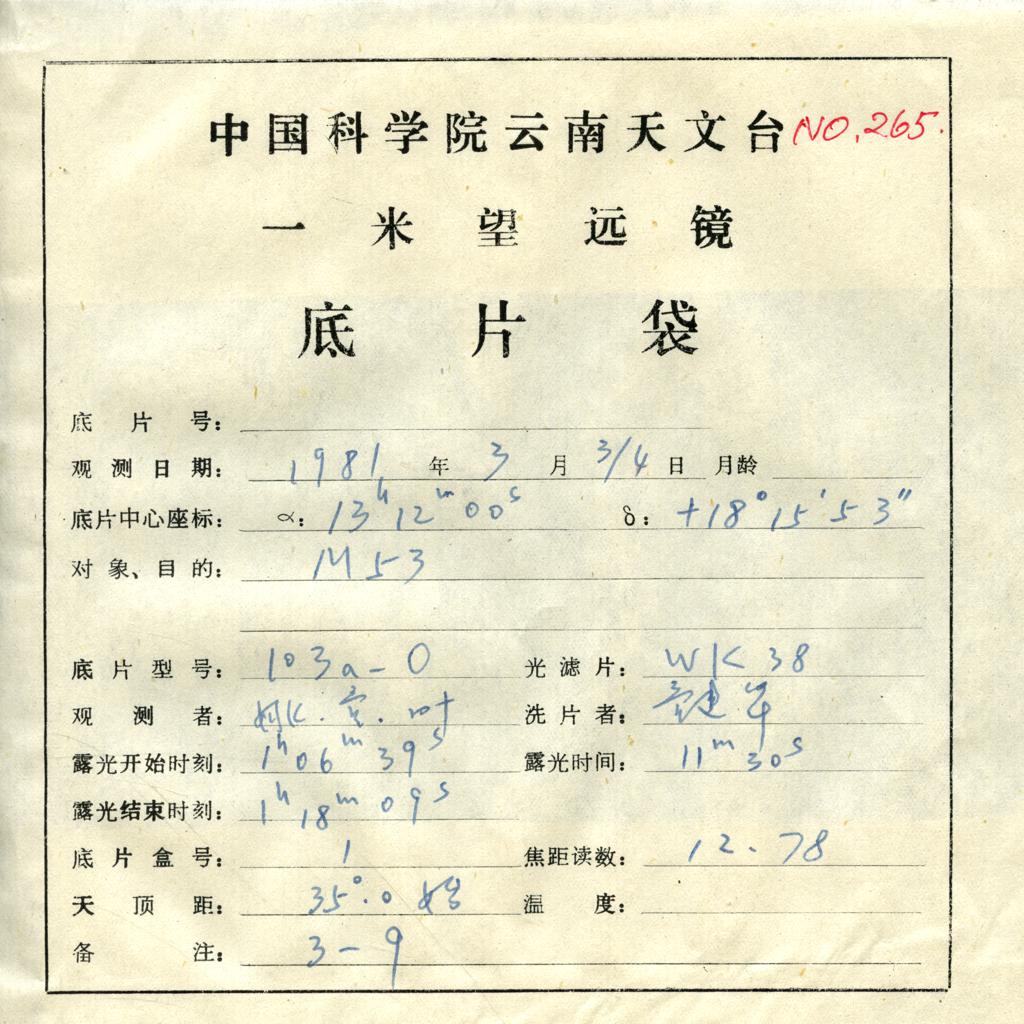 中国科学院云南天文台 NO.265.
一米望远镜
底片袋
底片号：
观测日期： 1981 年 3 月 3/4 日 月龄
底片中心座标： α： 13h 12m 00s δ： +18° 15′ 53″
对象、目的： M53
底片型号： 103a-O 光滤片： WK38
观测者： 洗片者：
露光开始时刻： 1h 06m 39s 露光时间： 11m 30s
露光结束时刻： 1h 18m 09s
底片盒号： 1 焦距读数： 12.78
天顶距： 35°.0 始 温度：
备注： 3-9